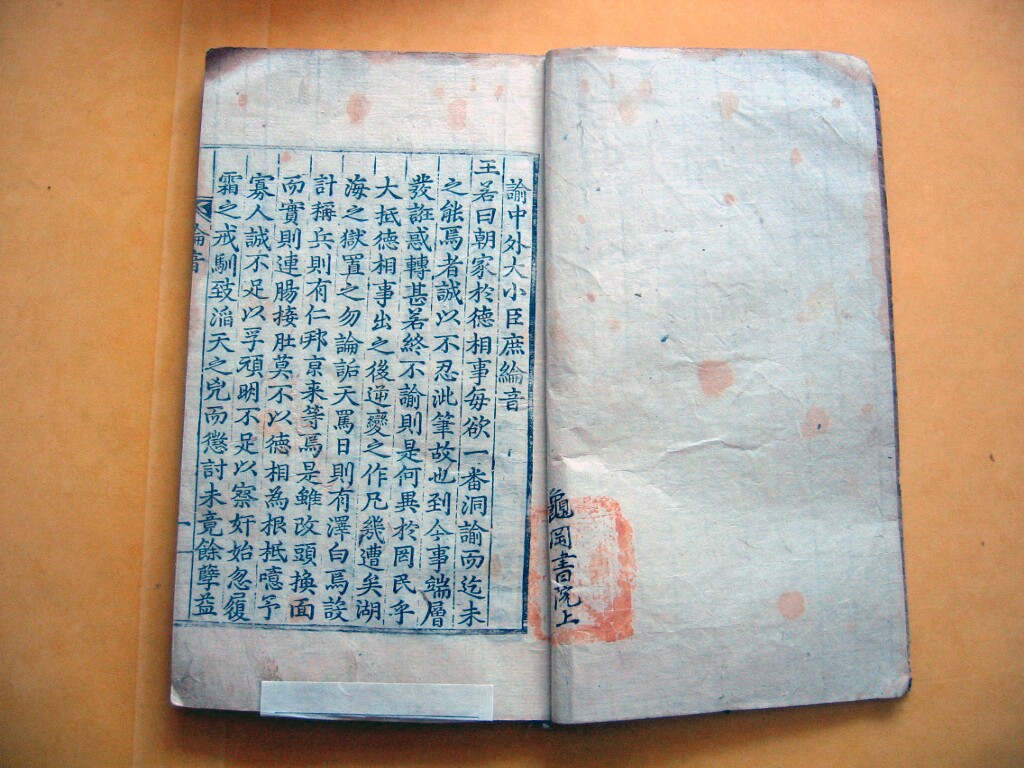 龜岡書院上
諭中外大小臣庶綸音
王若曰朝家於德相事每欲一番洞諭而迄未
之能焉者誠以不忍泚筆故也到今事端層
發誑惑轉甚若終不諭則是何異於罔民乎
大抵德相事出之後逆變之作凡幾遭矣湖
海之獄置之勿論詬天罵日則有澤白焉設
計稱兵則有仁邦京来等焉是雖改頭換面
而實則連腸接肚莫不以德相為根抵噫予
寡人誠不足以孚頑明不足以察奸始忽履
霜之戒馴致滔天之兇而懲討未竟餘孽益
綸音
一